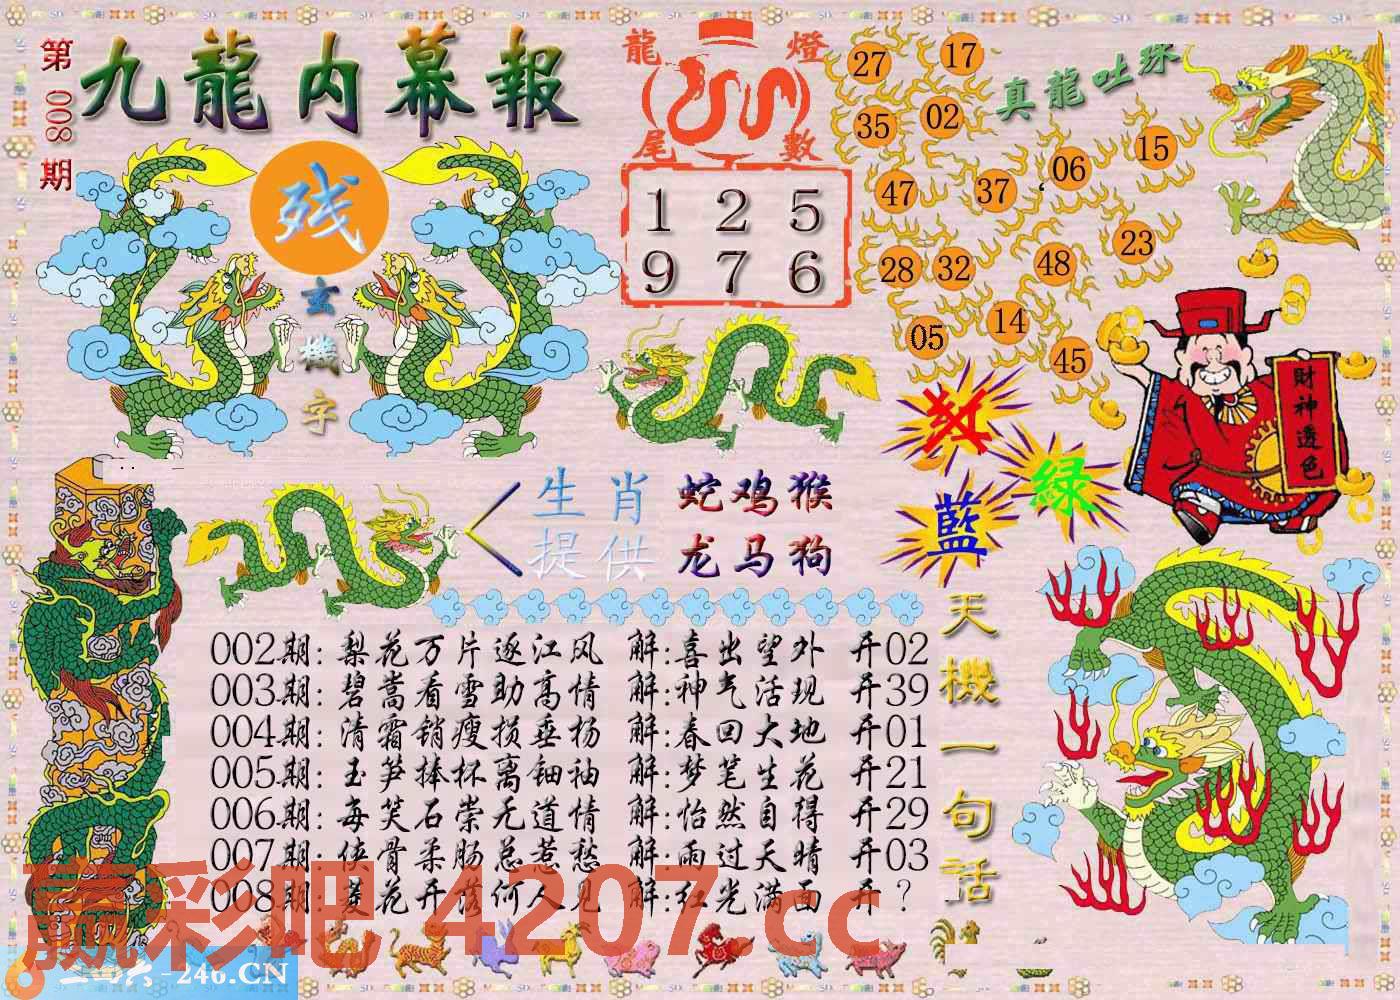 第008期
九龍内幕報
残
玄機字
龍燈
尾數
1 2 5
9 7 6
27 17
35 02
真龍吐珠
47 37 06 15
28 32 48 23
05 14 45
財神透色
红
绿
藍
生肖 蛇鸡猴
提供 龙马狗
天機一句話
002期: 梨花万片逐江风 解:喜出望外 开02
003期: 碧嵩看雪助高情 解:神气活现 开39
004期: 清霜销瘦损垂杨 解:春回大地 开01
005期: 玉笋捧杯离钿袖 解:梦笔生花 开21
006期: 每笑石崇无道情 解:怡然自得 开29
007期: 侠骨柔肠总惹愁 解:雨过天晴 开03
008期: 菱花开落何人见 解:红光满面 开?
赢彩吧 4207.cc
二四六-246.CN